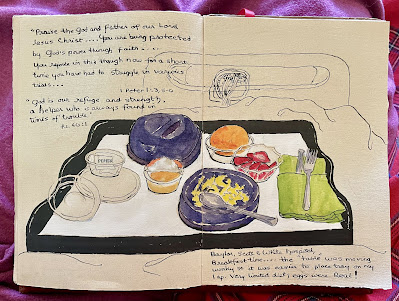 "Praise the God and Father of our Lord
Jesus Christ.... You are being protected
by God's power through faith....
You rejoice in this though now for a short
time you have had to struggle in various
trials...
1 Peter 1:3, 5-6
"God is our refuge and strength,
a helper who is always found in
times of trouble"
Ps. 46:1
Baylor, Scott & White Hospital,
Breakfast time... the table was moving
wonky so it was easier to place tray on my
lap. Very limited diet, eggs were Real!